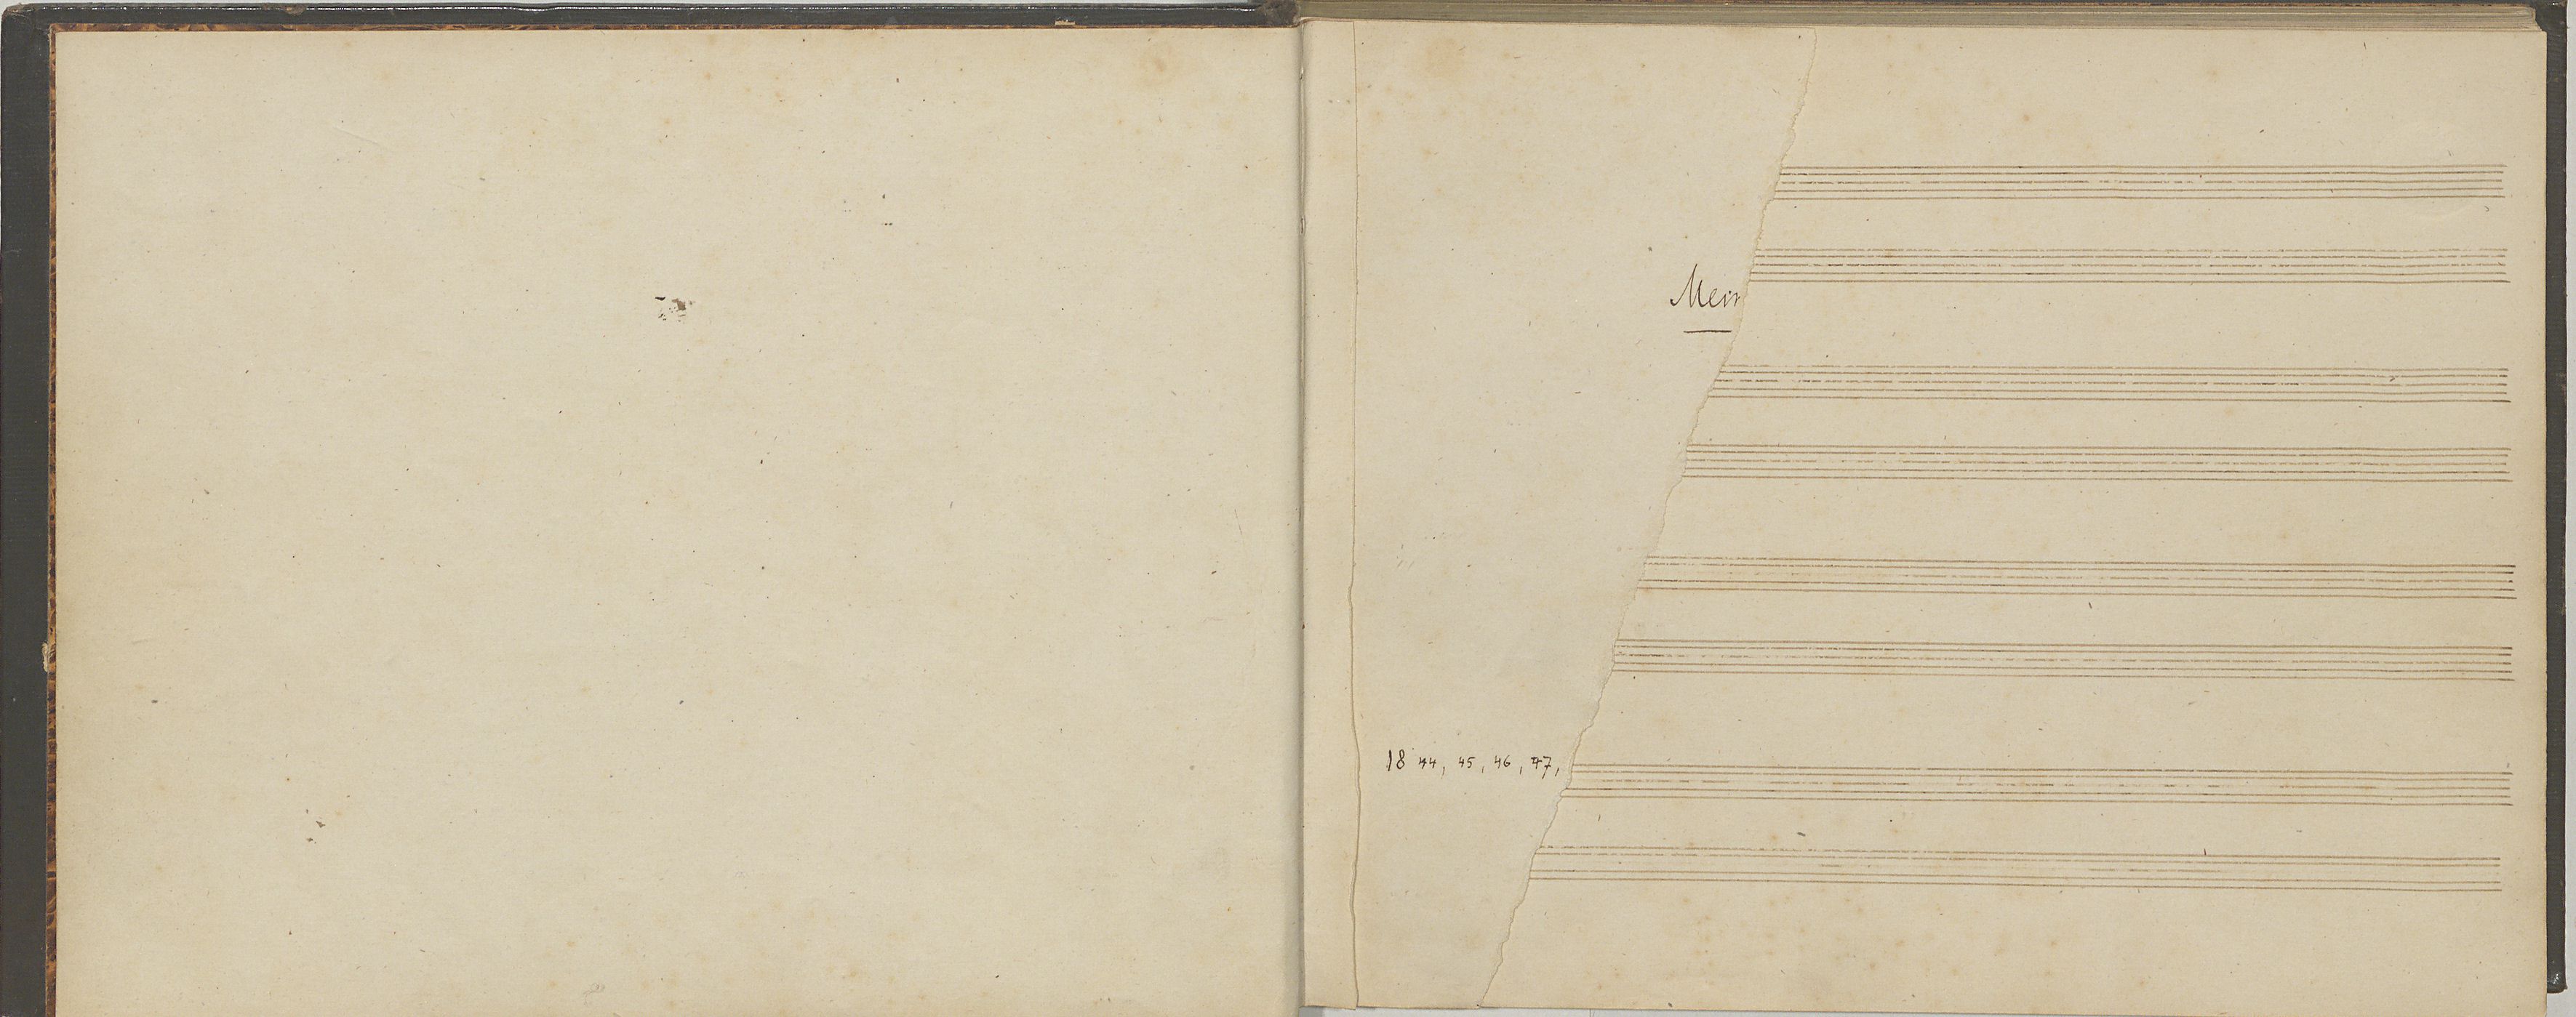 Mein
1844, 45, 46, 47,